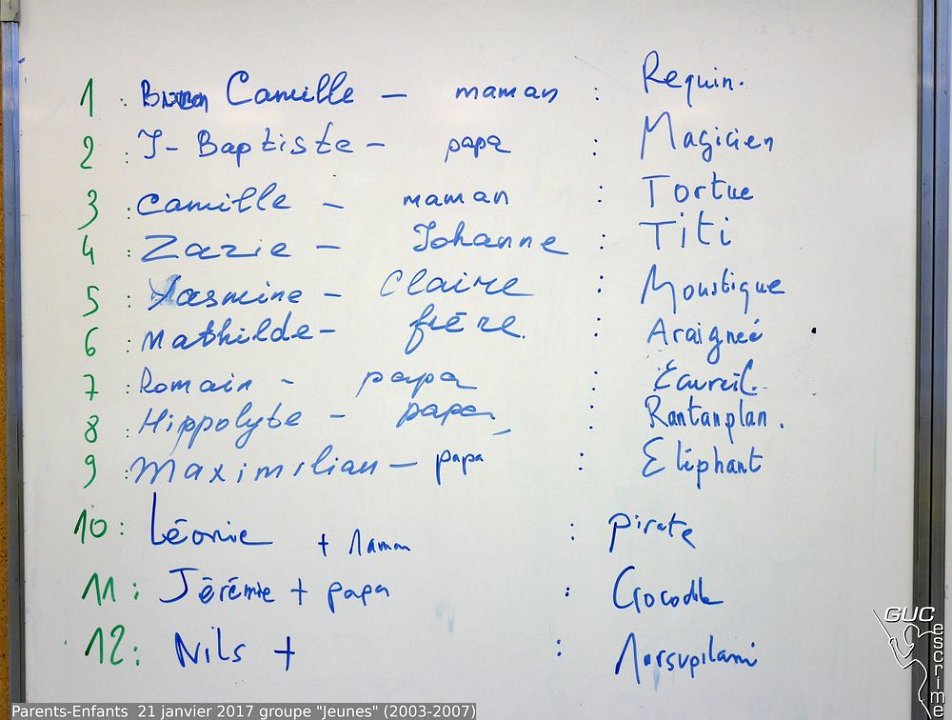 1 : Camille - maman : Requin.
2 : J-Baptiste - papa : Magicien
3 : Camille - maman : Tortue
4 : Zazie - Johanne : Titi
5 : Yasmine - Claire : Moustique
6 : Mathilde - frère. : Araigneé
7 : Romain - papa : Ecureil.
8 : Hippolyte - papa : Rantanplan.
9 : Maximilian - papa : Eléphant
10 : Léonie + Maman : Pirate
11 : Jérémie + papa : Crocodile
12 : Nils + : Marsupilami
GUC escrime
Parents-Enfants 21 janvier 2017 groupe "Jeunes" (2003-2007)